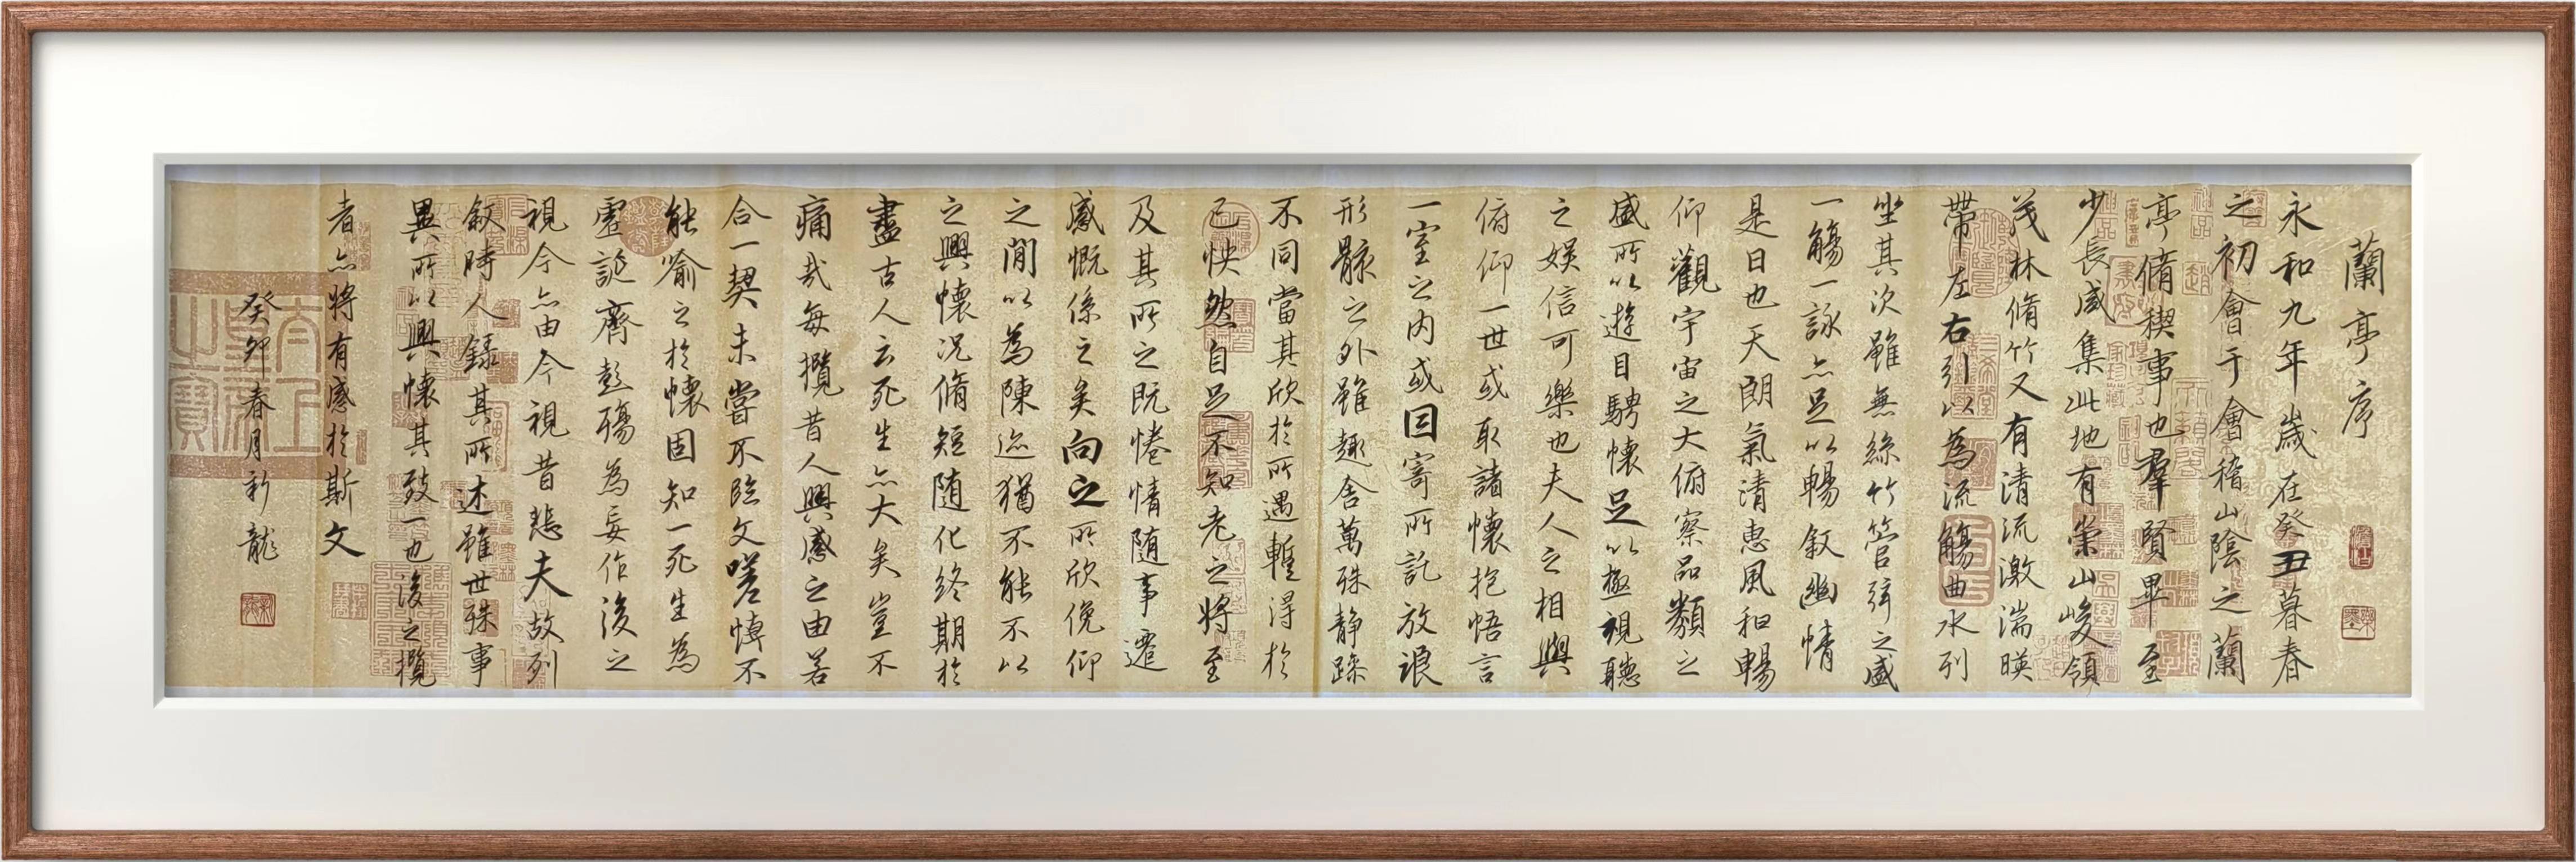 蘭亭序
永和九年歲在癸丑暮春
之初會于會稽山陰之蘭
亭脩稧事也羣賢畢至
少長咸集此地有崇山峻領
茂林脩竹又有清流激湍暎
帶左右引以為流觴曲水列
坐其次雖無絲竹管弦之盛
一觴一詠亦足以暢叙幽情
是日也天朗氣清惠風和暢
仰觀宇宙之大俯察品類之
盛所以遊目騁懷足以極視聽
之娛信可樂也夫人之相與
俯仰一世或取諸懷抱悟言
一室之內或因寄所託放浪
形骸之外雖趣舍萬殊静躁
不同當其欣於所遇暫得於
己怏然自足不知老之將至
及其所之既惓情隨事遷
感慨係之矣向之所欣俛仰
之閒以為陳迹猶不能不以
之興懷況脩短隨化終期於
盡古人云死生亦大矣豈不
痛哉每攬昔人興感之由若
合一契未嘗不臨文嗟悼不
能喻之於懷固知一死生為
虛誕齊彭殤為妄作後之
視今亦由今視昔悲夫故列
叙時人錄其所述雖世殊事
異所以興懷其致一也後之攬
者亦將有感於斯文
癸卯春月新龍
太上皇帝之寶